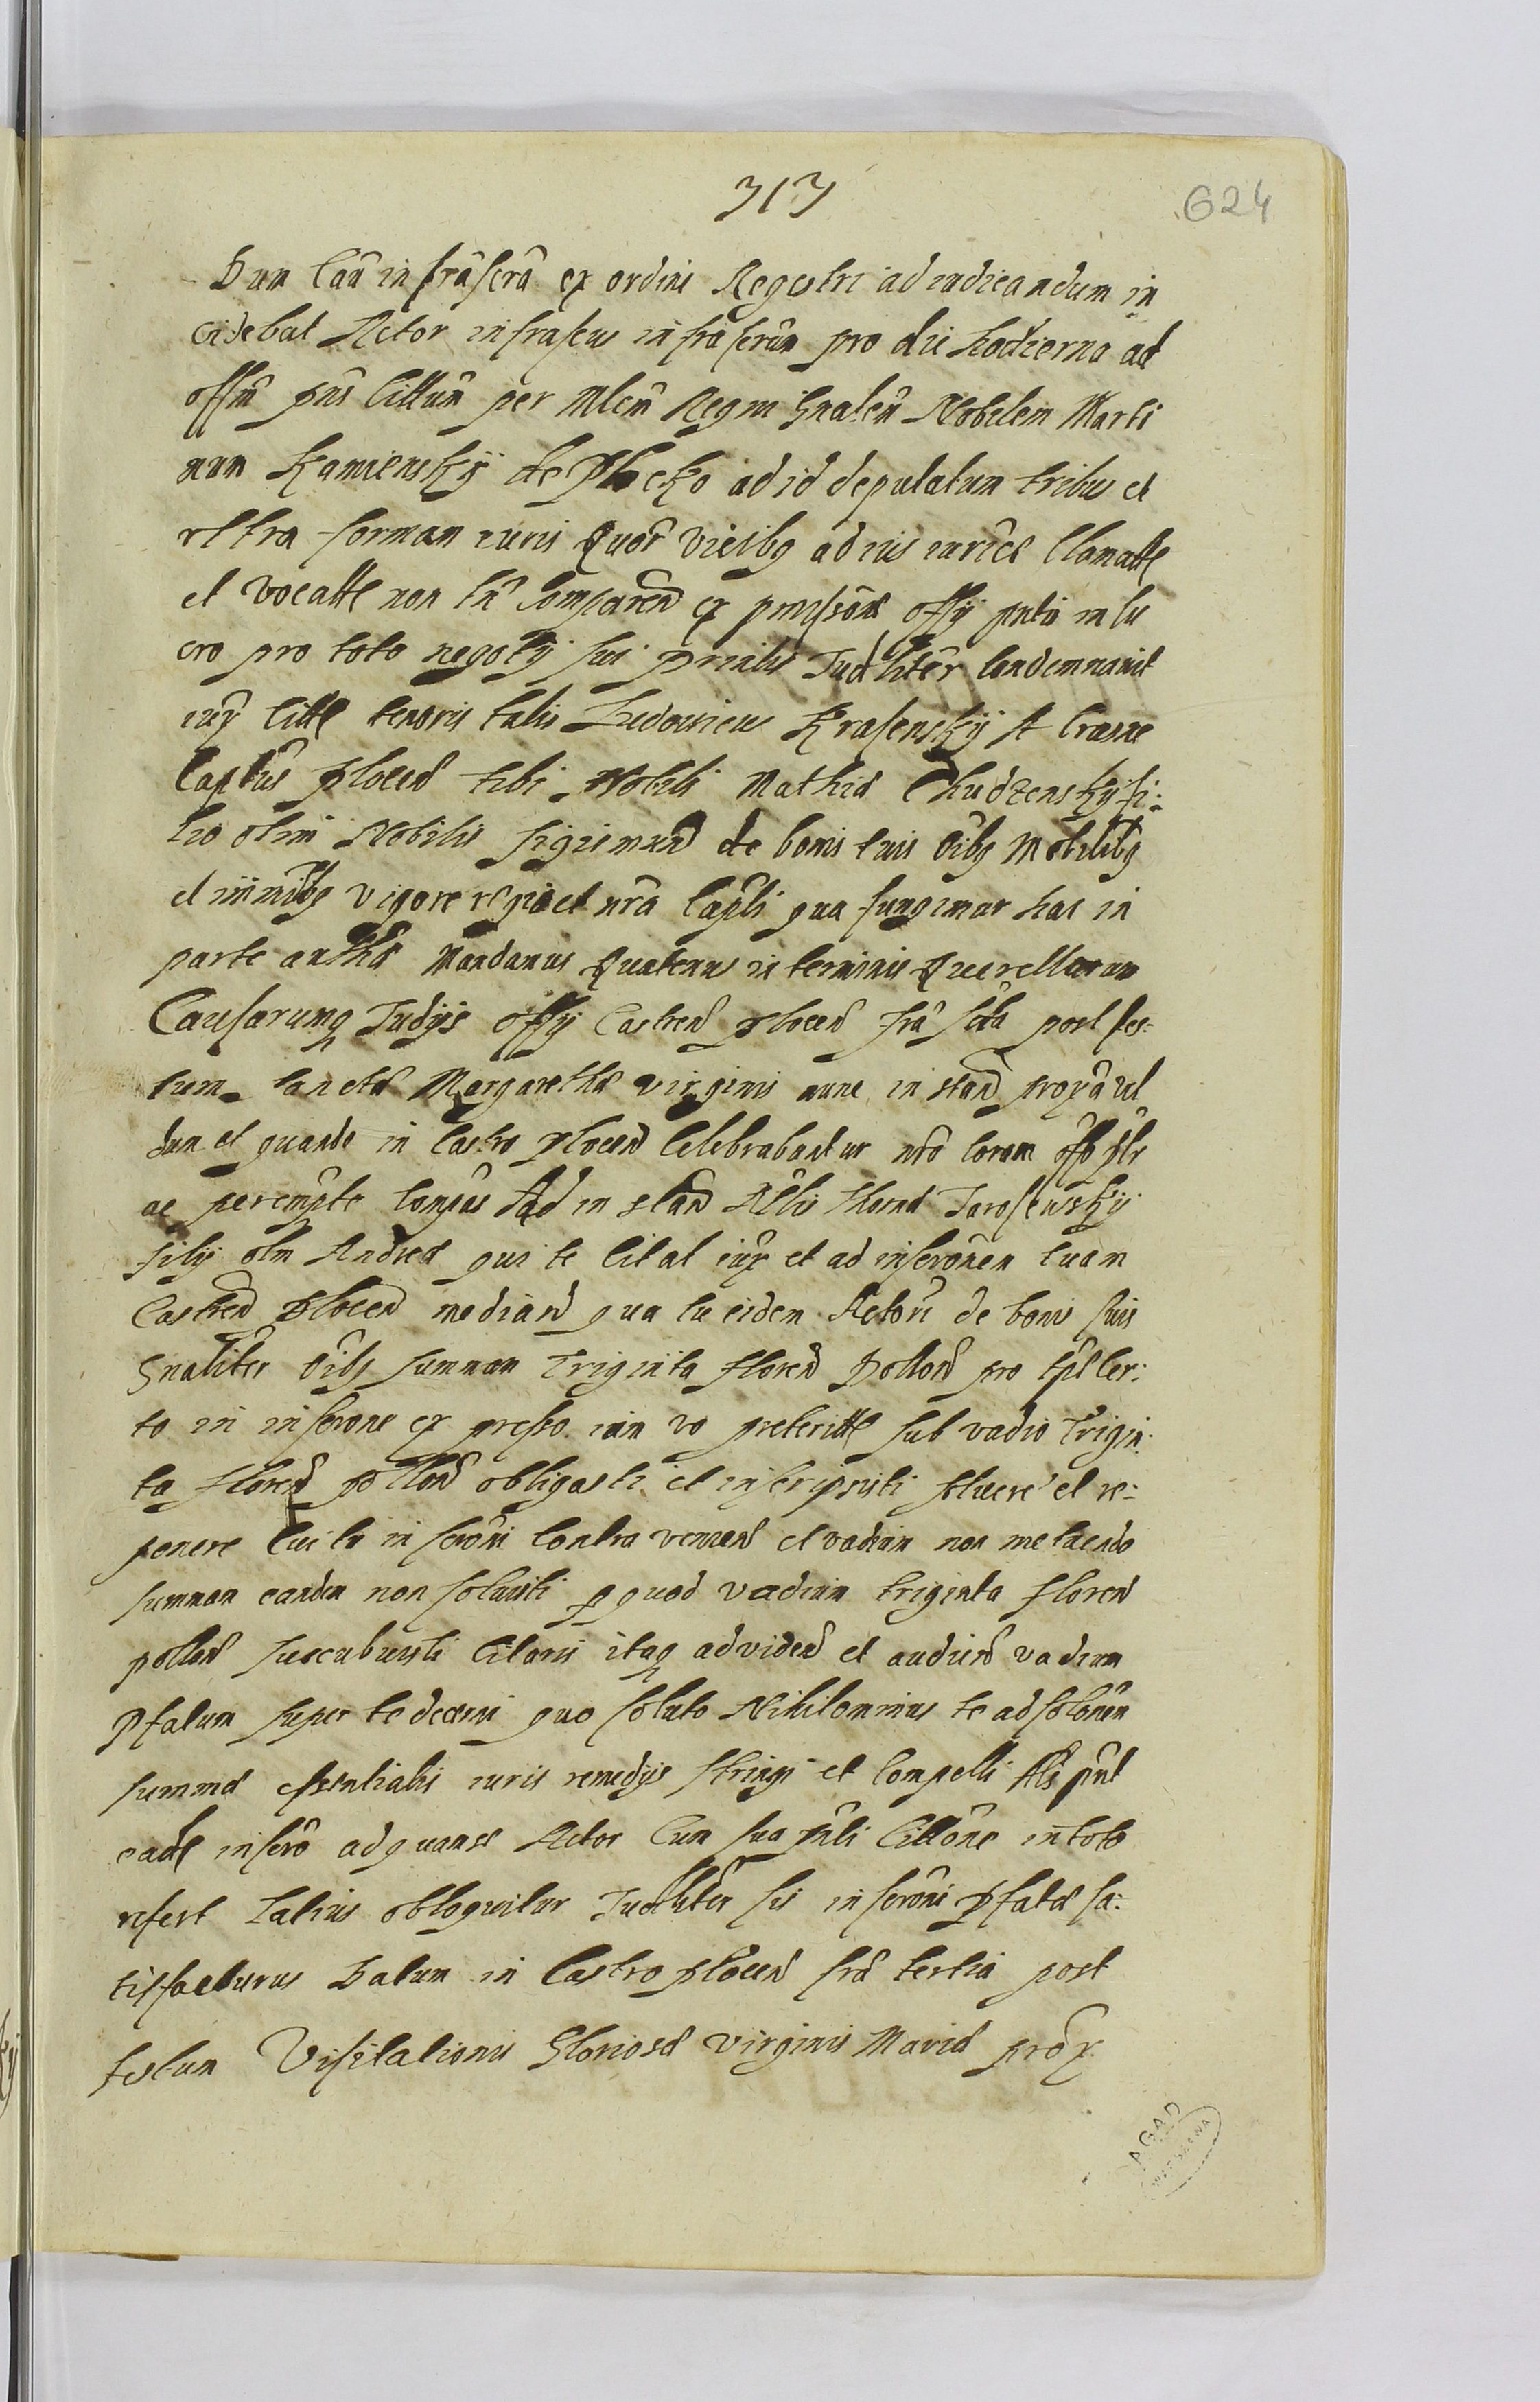 313
624
Dum Caã infrascrã ex ordine Regestri ad iudicandum in
cidebat Actor infrascus infrascrũm pro die hodierna ad
offm pñs Cittum per Mlem Regni Gnalem Nobilem Marti
num Kamiensky de Plocko ad id deputatum tribus et
vltra formam iuris Quor vicibq ad ius iurice Clamatte
et vocatte non tñ Comparen ex pmissone offy pntis in lu
cro pro toto negoty sui prinlis Judliter Condemnauit
iux Citte tenoris talis Ludouicus Krasensky A Crasne
Captus plocen tibi Nobili Mathiæ Chudzensky fi:
lio olim Nobilis Sigismun de bonis tuis oibq Mobilibq
et immibq vigore regia et nrã Capli qua fungimur hac in
parte authe Mandamus Quatenus in terminis Querellarum
Causarumq Judijs offy Castren plocen frã post fes:
tum Sanctæ Margarethæ virginis nunc instan prox vel
dum et quando in Castro plocen Celebrabantur nrõ Coram offo plr
ac perempte Compas Ad instan Nblis Thomæ Jarosewsky
fily olm Andreæ qui te Citat iux et ad inscronem tuam
Castren plocen median qua tu eidem Actori de bonis suis
Gnaliter oibq summam Triginta floren Pollon pro tple Cer:
to in inscrone expresso iam vo preteritte sub vadio Trigin:
ta floren pollon obligasti et inscripsisti soluere et re:
ponere Cui tu inscroni Contra venien et vadium non metuendo
summam eandem non soluisti p quod vadium triginta floren
pollon succubuisti Citaris itaq ad viden et audien vadium
Pfatum super te decerni quo soluto Nihilominus te ad solonem
summæ essentialis iuris remedys stringi et Compelli Als put
eadẽ inscro ad quam se Actor Cum sua pnti Cittone in toto
refert Latius obloquitur Judliter sis inscroni Pfatæ sa:
tisfacturus Datum in Castro plocen frã tertia post
festum Visitationis Gloriosæ virginis Mariæ prox
AGAD
WARSZAWA